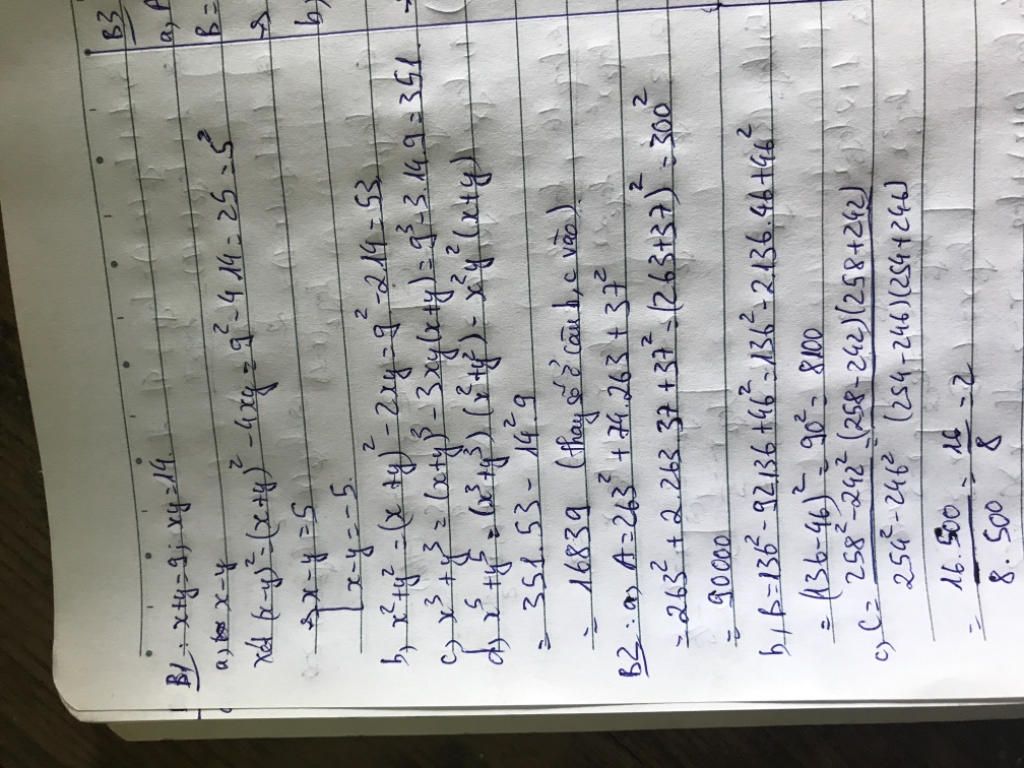 B1: x+y=9; xy=14.
a, x-y
xét (x-y)² = (x+y)² - 4xy = 9² - 4.14 = 25 = 5²
→ [x-y=5
[x-y=-5.
b, x²+y² = (x+y)² - 2xy = 9² - 2.14 = 53
c, x³+y³ = (x+y)³ - 3xy(x+y) = 9³ - 3.14.9 = 351.
d, x⁵+y⁵ = (x³+y³)(x²+y²) - x²y²(x+y)
= 351.53 - 14².9
= 16839 (thay số ở câu b, c vào).
B2: a, A = 263² + 74.263 + 37²
= 263² + 2.263.37 + 37² = (263+37)² = 300²
= 90000
b, B = 136² - 92.136 + 46² = 136² - 2.136.46 + 46²
= (136-46)² = 90² = 8100
c, C = 258² - 242² / 254² - 246² = (258-242)(258+242) / (254-246)(254+246)
= 16.500 / 8.500 = 16 / 8 = 2
B3
a, A
B=
→
b,